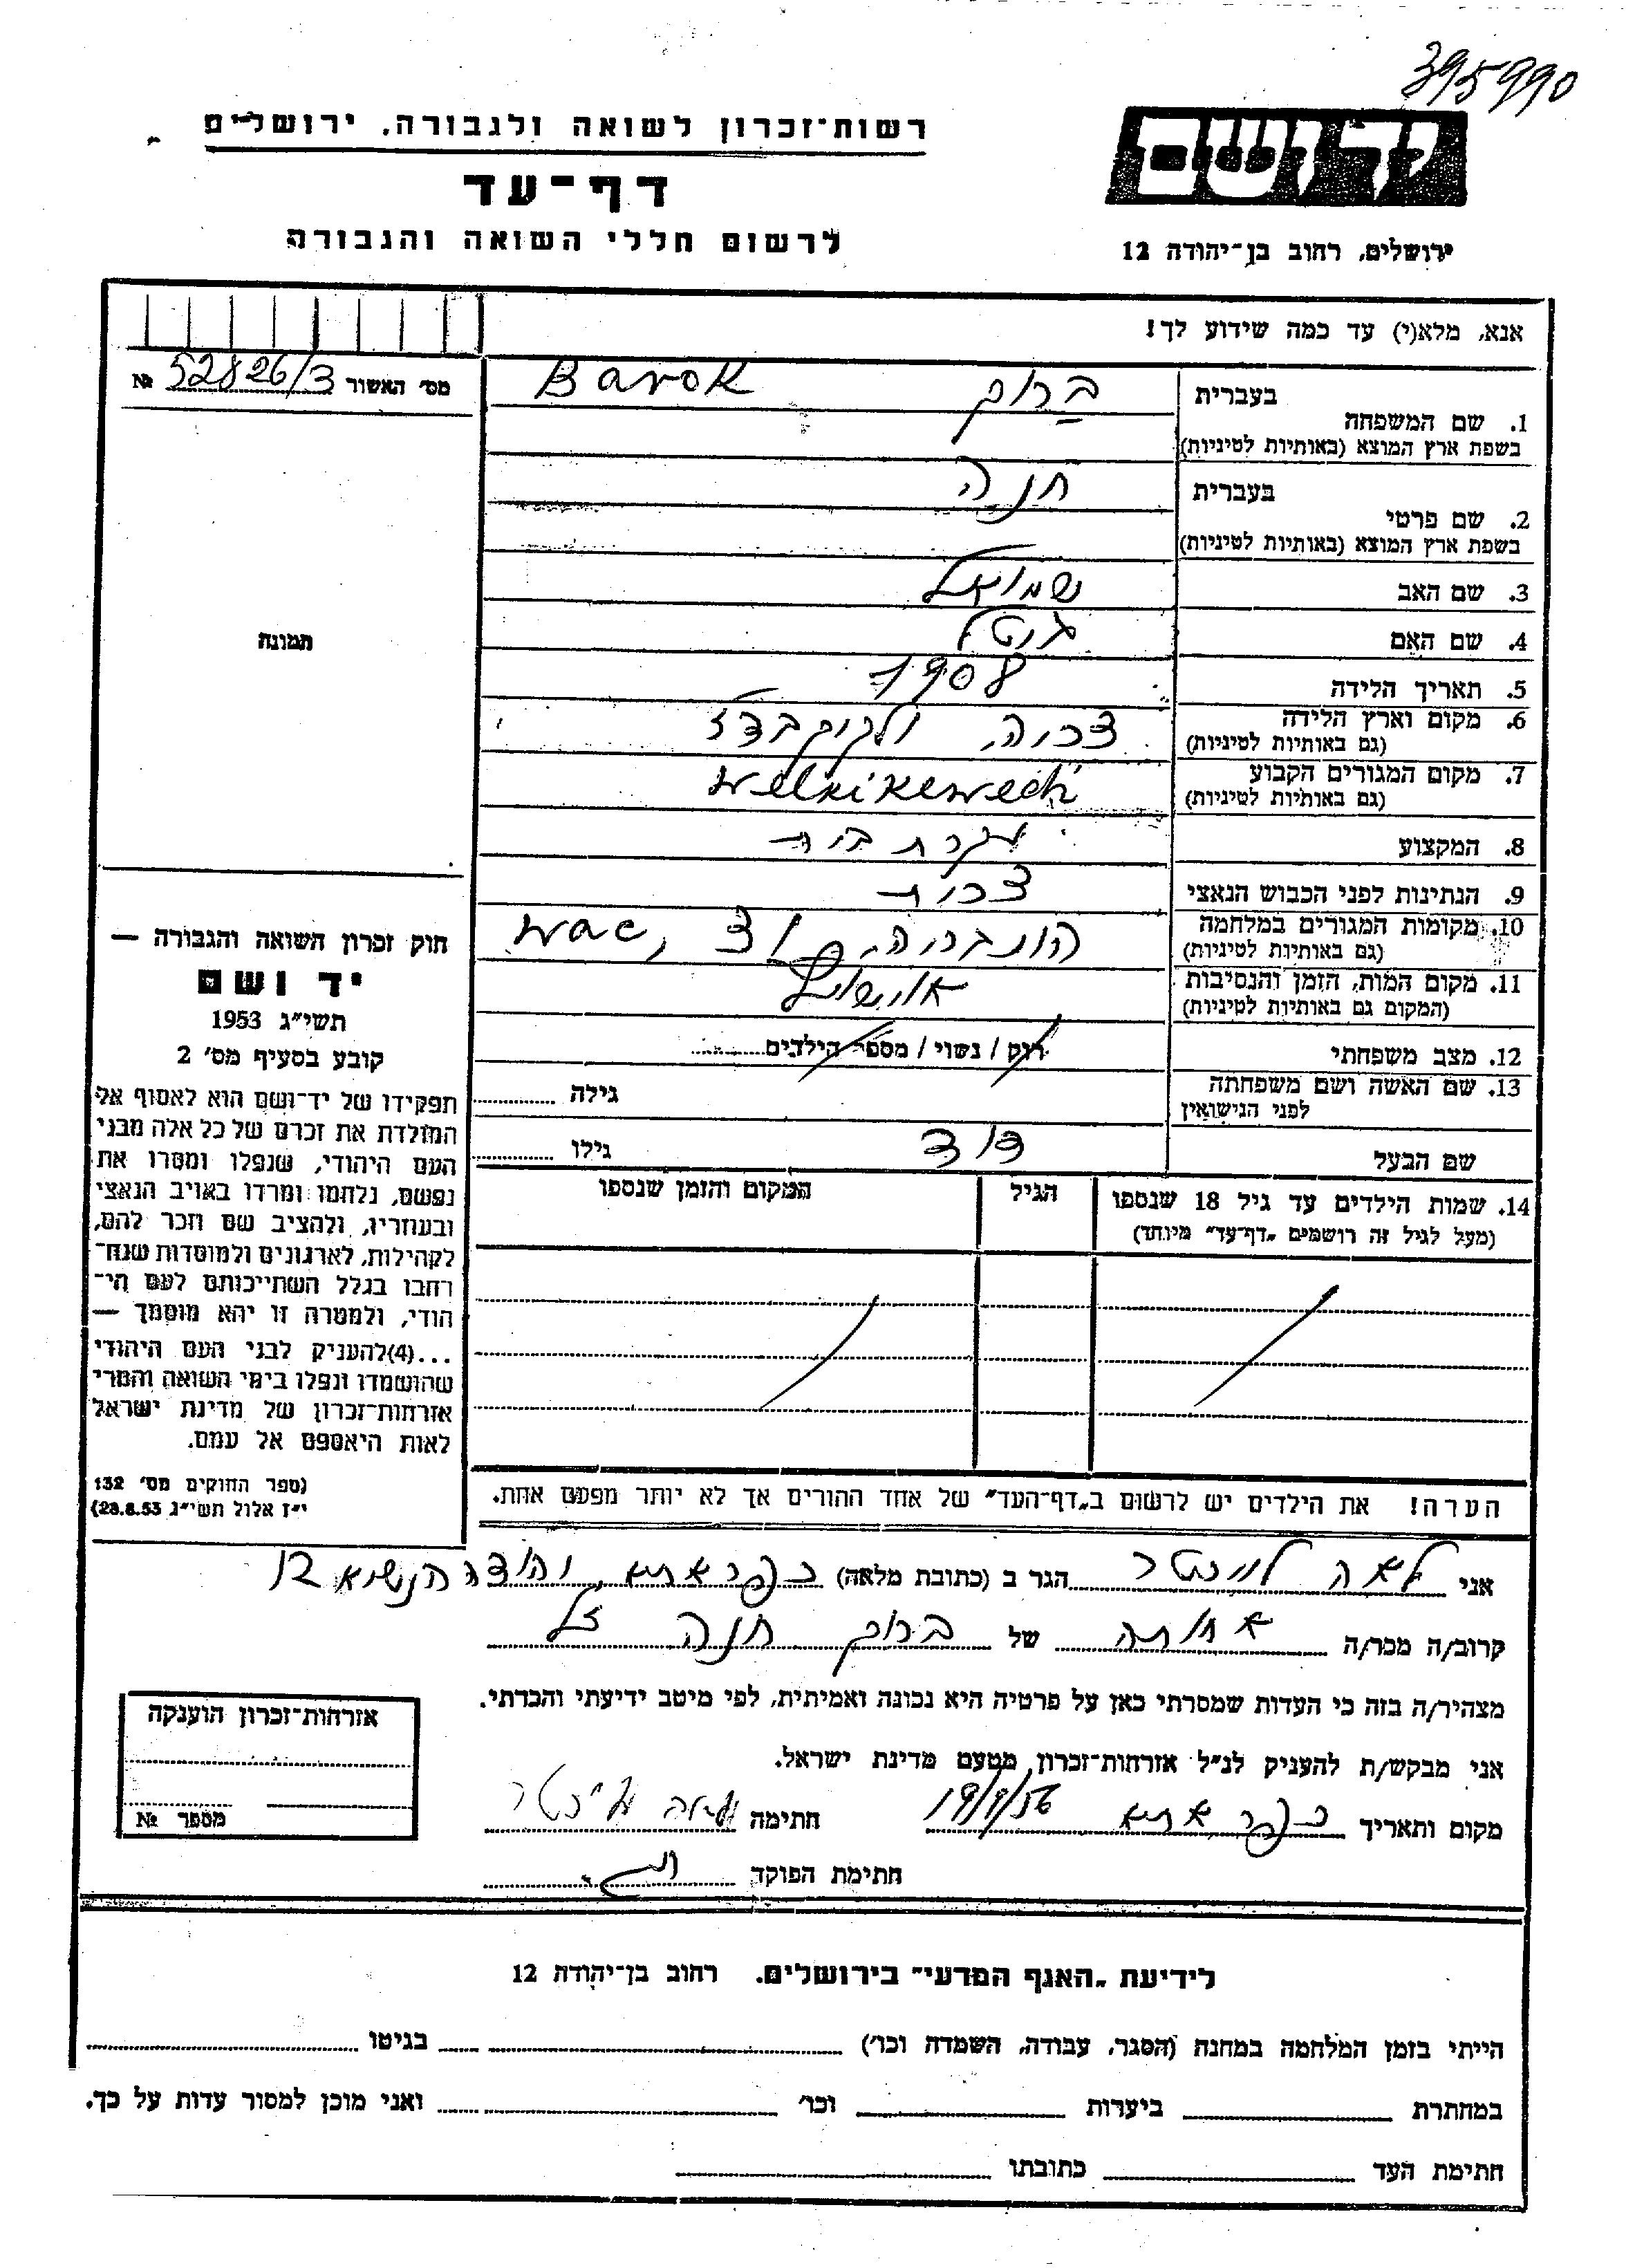 395990
רשות־זכרון לשואה ולגבורה, ירושלים
דף־עד
לרשום חללי השואה והגבורה
ידושם
ירושלים, רחוב בן־יהודה 12
אנא, מלא(י) עד כמה שידוע לך!
מס׳ האשור 52826/3 №
תמונה
1. שם המשפחה
בעברית ברוק Barok
בשפת ארץ המוצא (באותיות לטיניות)
2. שם פרטי
בעברית חנה
בשפת ארץ המוצא (באותיות לטיניות)
3. שם האב שמואל
4. שם האם גיטל
5. תאריך הלידה 1908
6. מקום וארץ הלידה צכיה,
(גם באותיות לטיניות)
7. מקום המגורים הקבוע
(גם באותיות לטיניות)
8. המקצוע עקרת בית
9. הנתינות לפני הכבוש הנאצי צכית
10. מקומות המגורים במלחמה הונגריה, wac,
(גם באותיות לטיניות)
11. מקום המות, הזמן והנסיבות אושויץ
(המקום גם באותיות לטיניות)
12. מצב משפחתי רווק / נשוי / מספר הילדים
13. שם האשה ושם משפחתה גילה
לפני הנישואין
שם הבעל דוד גילו
14. שמות הילדים עד גיל 18 שנספו הגיל המקום והזמן שנספו
(מעל לגיל זה רושמים „דף־עד״ מיוחד)
חוק זכרון השואה והגבורה —
יד ושם
תשי״ג 1953
קובע בסעיף מס׳ 2
תפקידו של יד־ושם הוא לאסוף אל
המולדת את זכרם של כל אלה מבני
העם היהודי, שנפלו ומסרו את
נפשם, נלחמו ומרדו באויב הנאצי
ובעוזריו, ולהציב שם וזכר להם,
לקהילות, לארגונים ולמוסדות שנח־
רחבו בגלל השתייכותם לעם הי־
הודי, ולמטרה זו יהא מוסמך —
...(4)להעניק לבני העם היהודי
שהושמדו ונפלו בימי השואה והמרי
אזרחות־זכרון של מדינת ישראל
לאות היאספם אל עמם.
(ספר החוקים מס׳ 132
י״ז אלול תשי״ג 28.8.53)
הערה! את הילדים יש לרשום ב„דף־העד״ של אחד ההורים אך לא יותר מפעם אחת.
אני לאה הגר ב (כתובת מלאה) כפר אתא, יהודה הנשיא 12
קרוב/ה מכר/ה אחותה של ברוק חנה ז״ל
מצהיר/ה בזה כי העדות שמסרתי כאן על פרטיה היא נכונה ואמיתית, לפי מיטב ידיעתי והכרתי.
אני מבקש/ת להעניק לנ״ל אזרחות־זכרון מטעם מדינת ישראל.
מקום ותאריך כפר אתא חתימה
חתימת הפוקד
אזרחות־זכרון הוענקה
מספר №
לידיעת „האגף המדעי״ בירושלים. רחוב בן־יהודה 12
הייתי בזמן המלחמה במחנה (הסגר, עבודה, השמדה וכו׳) בגיטו
במחתרת ביערות וכו׳ ואני מוכן למסור עדות על כך.
חתימת העד כתובתו